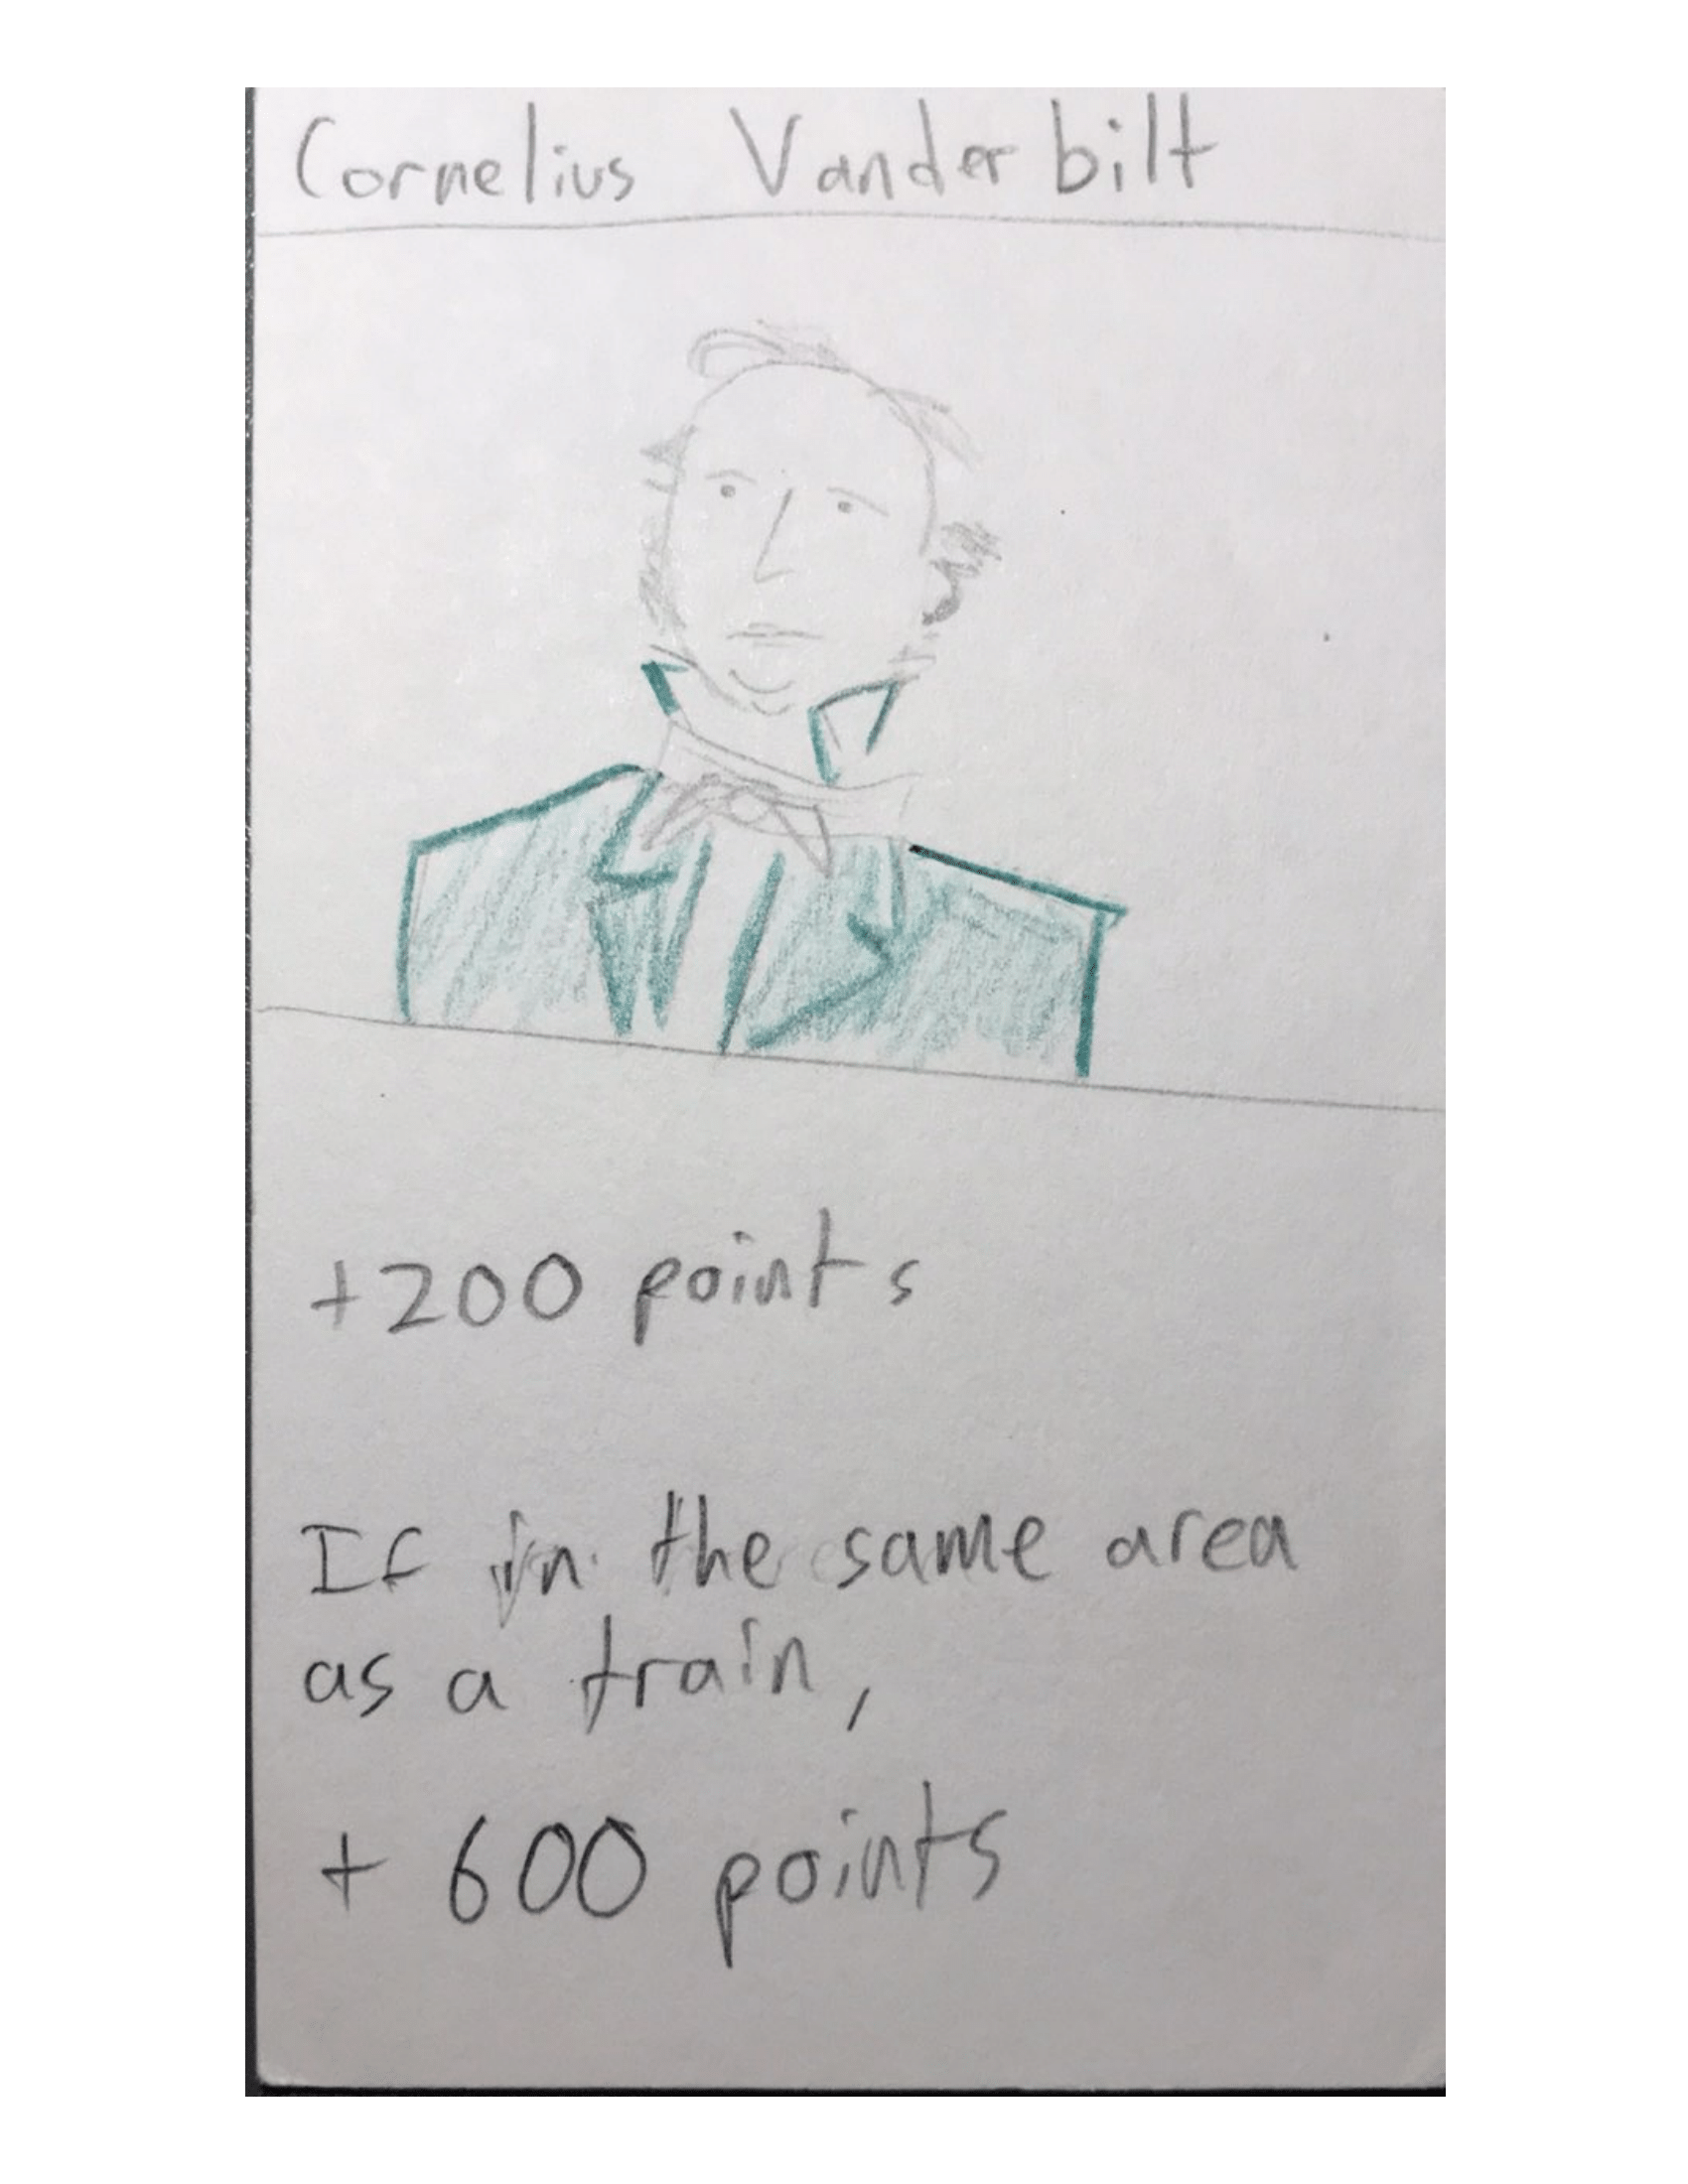 Cornelius Vanderbilt
+200 points
If in the same area
as a train,
+ 600 points